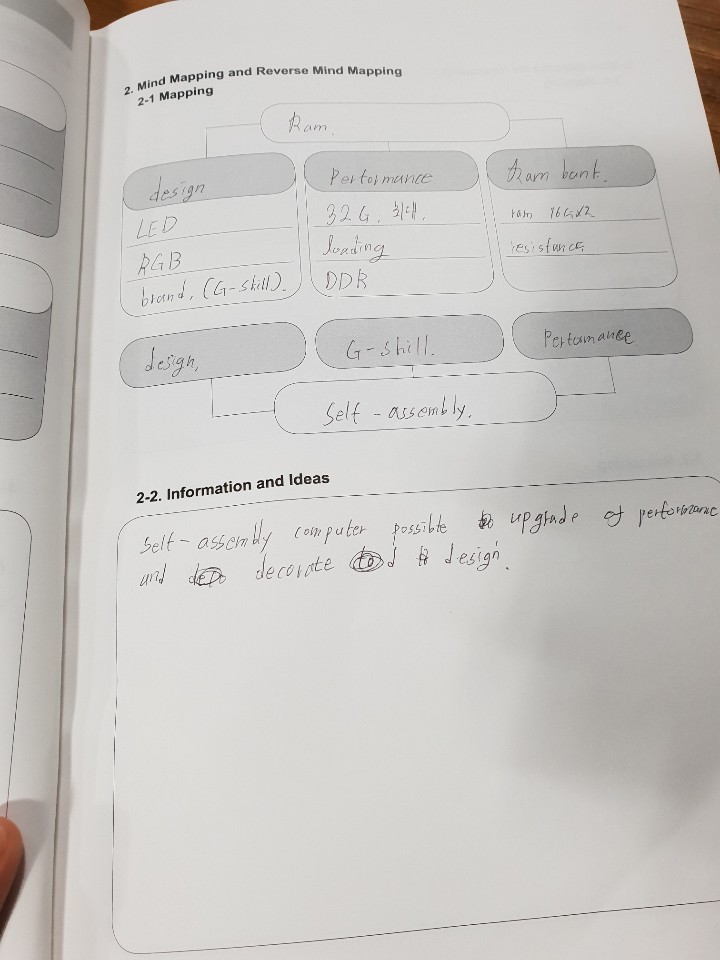 2. Mind Mapping and Reverse Mind Mapping
2-1 Mapping
Ram.
design
Performance
Ram bank.
LED
32G. 최대.
ram 16G×2
RGB
loading
resistance
brand. (G-skill).
DDR
design,
G-skill.
Perfomance
Self-assembly.
2-2. Information and Ideas
Self-assembly computer possible to upgrade of performance
and decorate design.